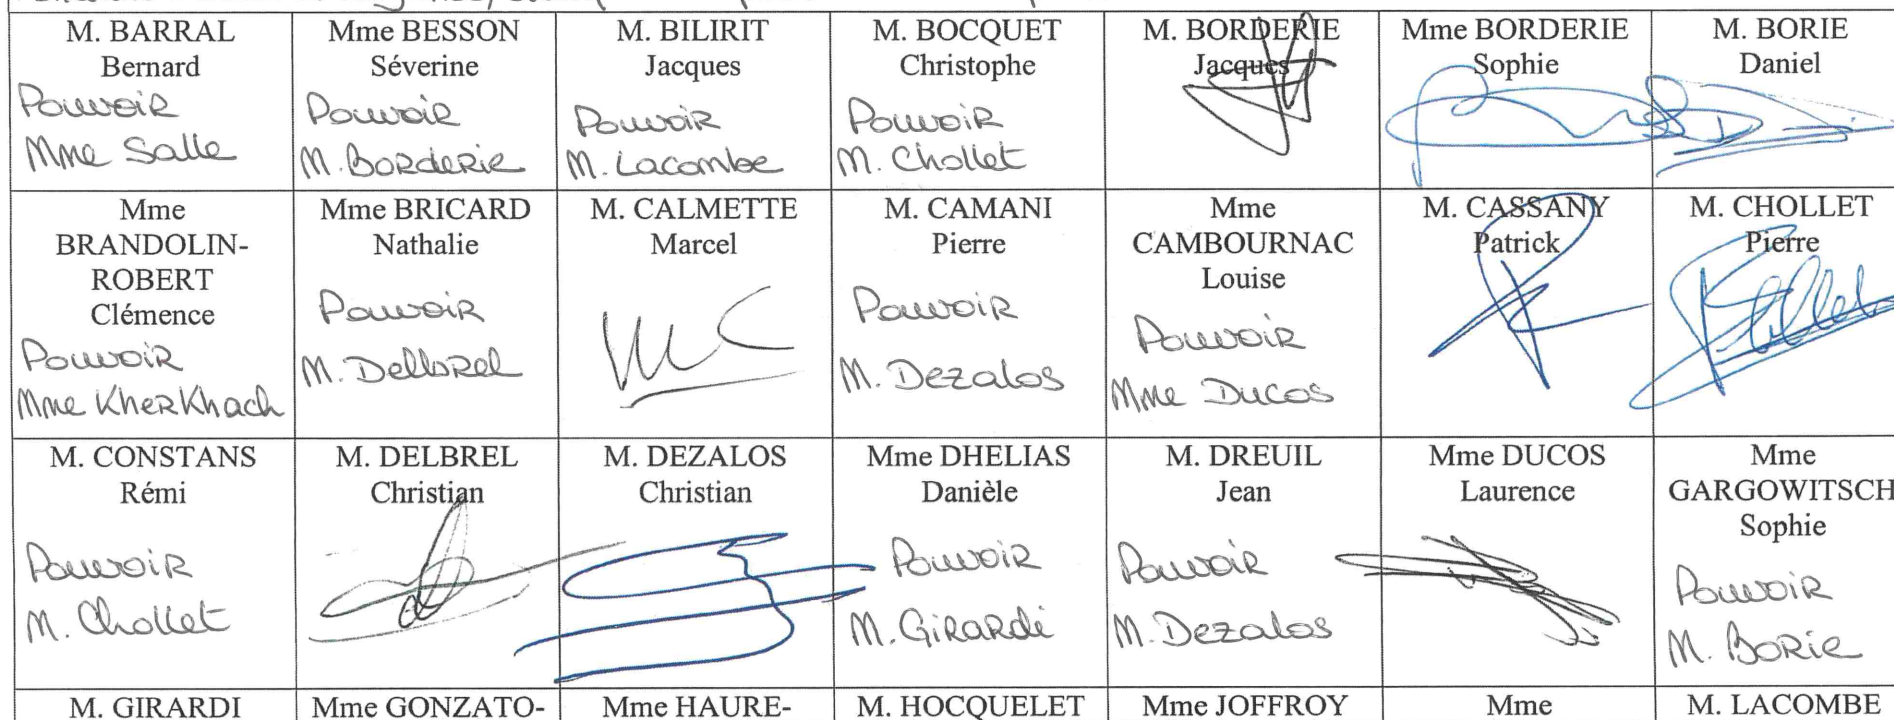 M. BARRAL
Bernard
Pouvoir
Mme Salle
Mme BESSON
Séverine
Pouvoir
M. Borderie
M. BILIRIT
Jacques
Pouvoir
M. Lacombe
M. BOCQUET
Christophe
Pouvoir
M. Chollet
M. BORDERIE
Jacques
Mme BORDERIE
Sophie
M. BORIE
Daniel
Mme
BRANDOLIN-
ROBERT
Clémence
Pouvoir
Mme KherKhach
Mme BRICARD
Nathalie
Pouvoir
M. Delbrel
M. CALMETTE
Marcel
MC
M. CAMANI
Pierre
Pouvoir
M. Dezalos
Mme
CAMBOURNAC
Louise
Pouvoir
Mme Ducos
M. CASSANY
Patrick
M. CHOLLET
Pierre
M. CONSTANS
Rémi
Pouvoir
M. Chollet
M. DELBREL
Christian
M. DEZALOS
Christian
Mme DHELIAS
Danièle
Pouvoir
M. Girardi
M. DREUIL
Jean
Pouvoir
M. Dezalos
Mme DUCOS
Laurence
Mme
GARGOWITSCH
Sophie
Pouvoir
M. Borie
M. GIRARDI
Mme GONZATO-
Mme HAURE-
M. HOCQUELET
Mme JOFFROY
Mme
M. LACOMBE